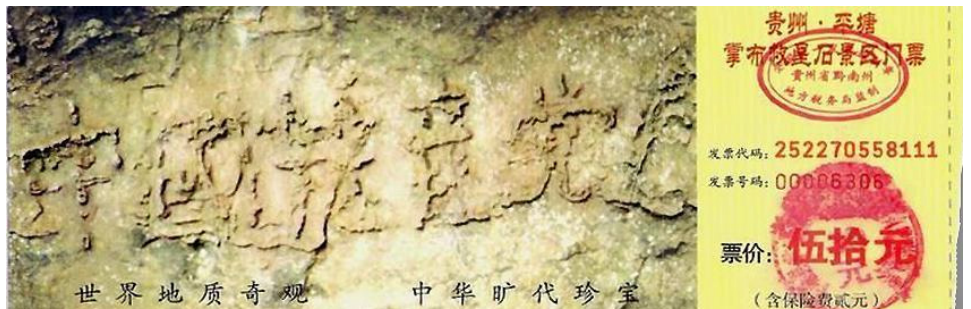 中國共產党亡
世界地质奇观 中华旷代珍宝
贵州·平塘
掌布救星石景区门票
贵州省黔南州
地方税务局监制
发票代码：252270558111
发票号码：00006306
票价：伍拾元
（含保险费贰元）